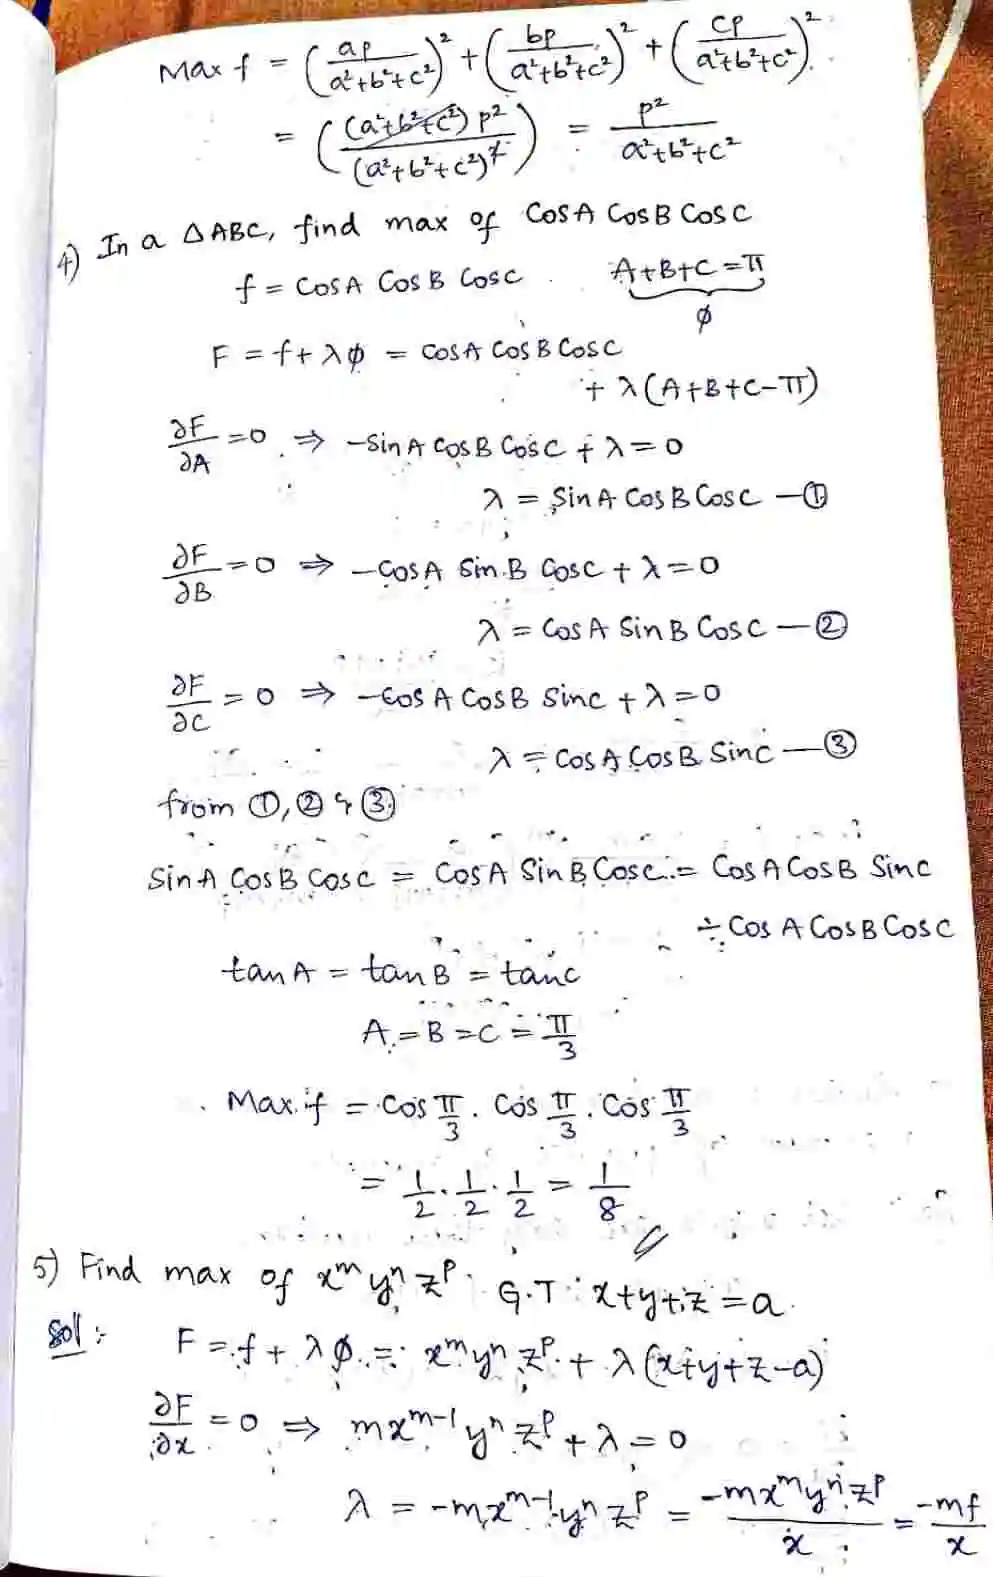 Max f = (ap/(a²+b²+c²))² + (bp/(a²+b²+c²))² + (cp/(a²+b²+c²))²
= ((a²+b²+c²) p²/(a²+b²+c²)²) = p²/(a²+b²+c²)
4) In a △ABC, find max of CosA CosB Cosc
f = CosA CosB Cosc . A+B+C=π
φ
F = f+λφ = cosA CosB Cosc
+ λ(A+B+C-π)
∂F/∂A =0 ⇒ -sinA cosB Cosc + λ=0
λ = sinA CosB Cosc —①
∂F/∂B =0 ⇒ -cosA Sin B Cosc + λ=0
λ = CosA SinB Cosc —②
∂F/∂C = 0 ⇒ -cosA CosB Sinc + λ=0
λ = CosA CosB Sinc —③
from ①, ② & ③
SinA CosB Cosc = CosA SinB Cosc = CosA CosB Sinc
÷ Cos A CosB Cosc
tanA = tanB = tanc
A=B=C=π/3
Max f = Cos π/3 . Cos π/3 . Cos π/3
= 1/2 . 1/2 . 1/2 = 1/8
5) Find max of xᵐyⁿzᵖ G.T x+y+z=a.
Sol :- F = f + λφ = xᵐyⁿzᵖ + λ(x+y+z-a)
∂F/∂x = 0 ⇒ mxᵐ⁻¹yⁿzᵖ + λ = 0
λ = -mxᵐ⁻¹yⁿzᵖ = -mxᵐyⁿzᵖ/x = -mf/x